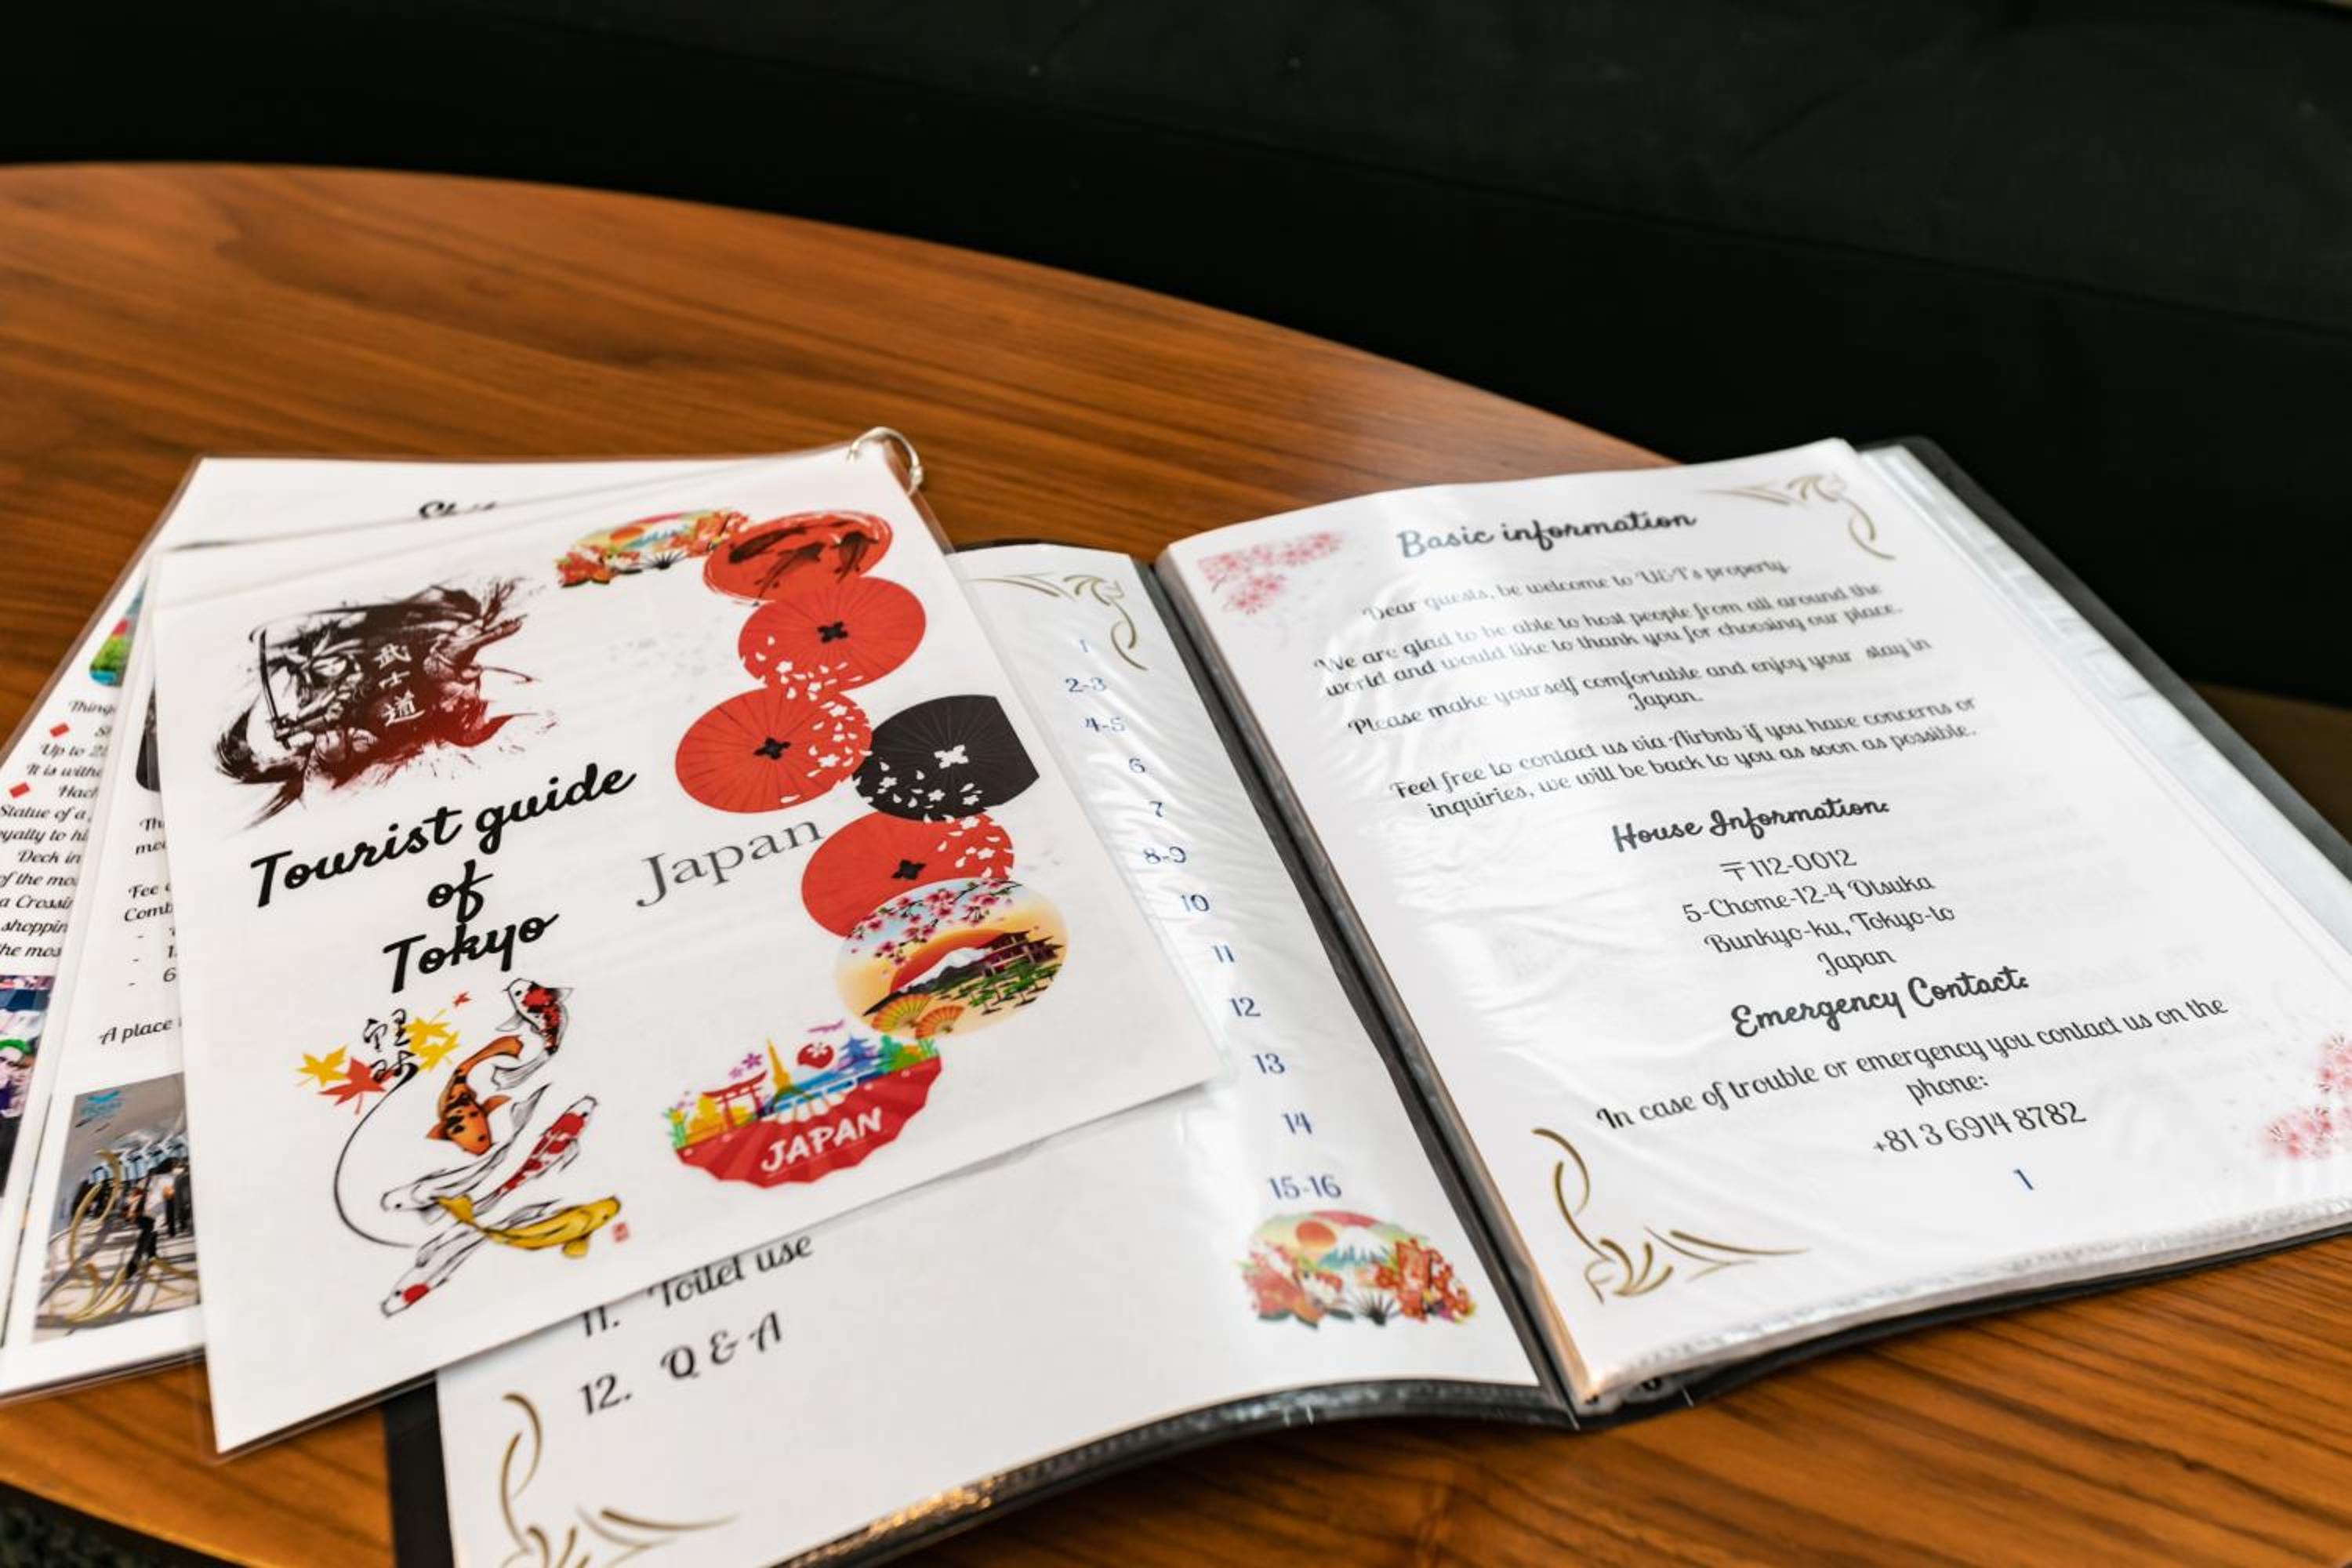 Thing
Up to
It is withi
Hach
Statue of a
yalty to hi
Deck in
of the mo
a Crossin
shoppin
the mos
Th
Fee
Comb
-
- 1
- 6
A place
武
士
道
Tourist guide
of
Tokyo
Japan
鯉
JAPAN
1
2-3
4-5
6
7
8-9
10
11
12
13
14
15-16
11. Toilet use
12. Q & A
Basic information
Dear guests, be welcome to U&I's property.
We are glad to be able to host people from all around the
world and would like to thank you for choosing our place.
Please make yourself comfortable and enjoy your stay in
Japan.
Feel free to contact us via Airbnb if you have concerns or
inquiries, we will be back to you as soon as possible.
House Information:
〒112-0012
5-Chome-12-4 Otsuka
Bunkyo-ku, Tokyo-to
Japan
Emergency Contact:
In case of trouble or emergency you contact us on the
phone:
+81 3 6914 8782
1